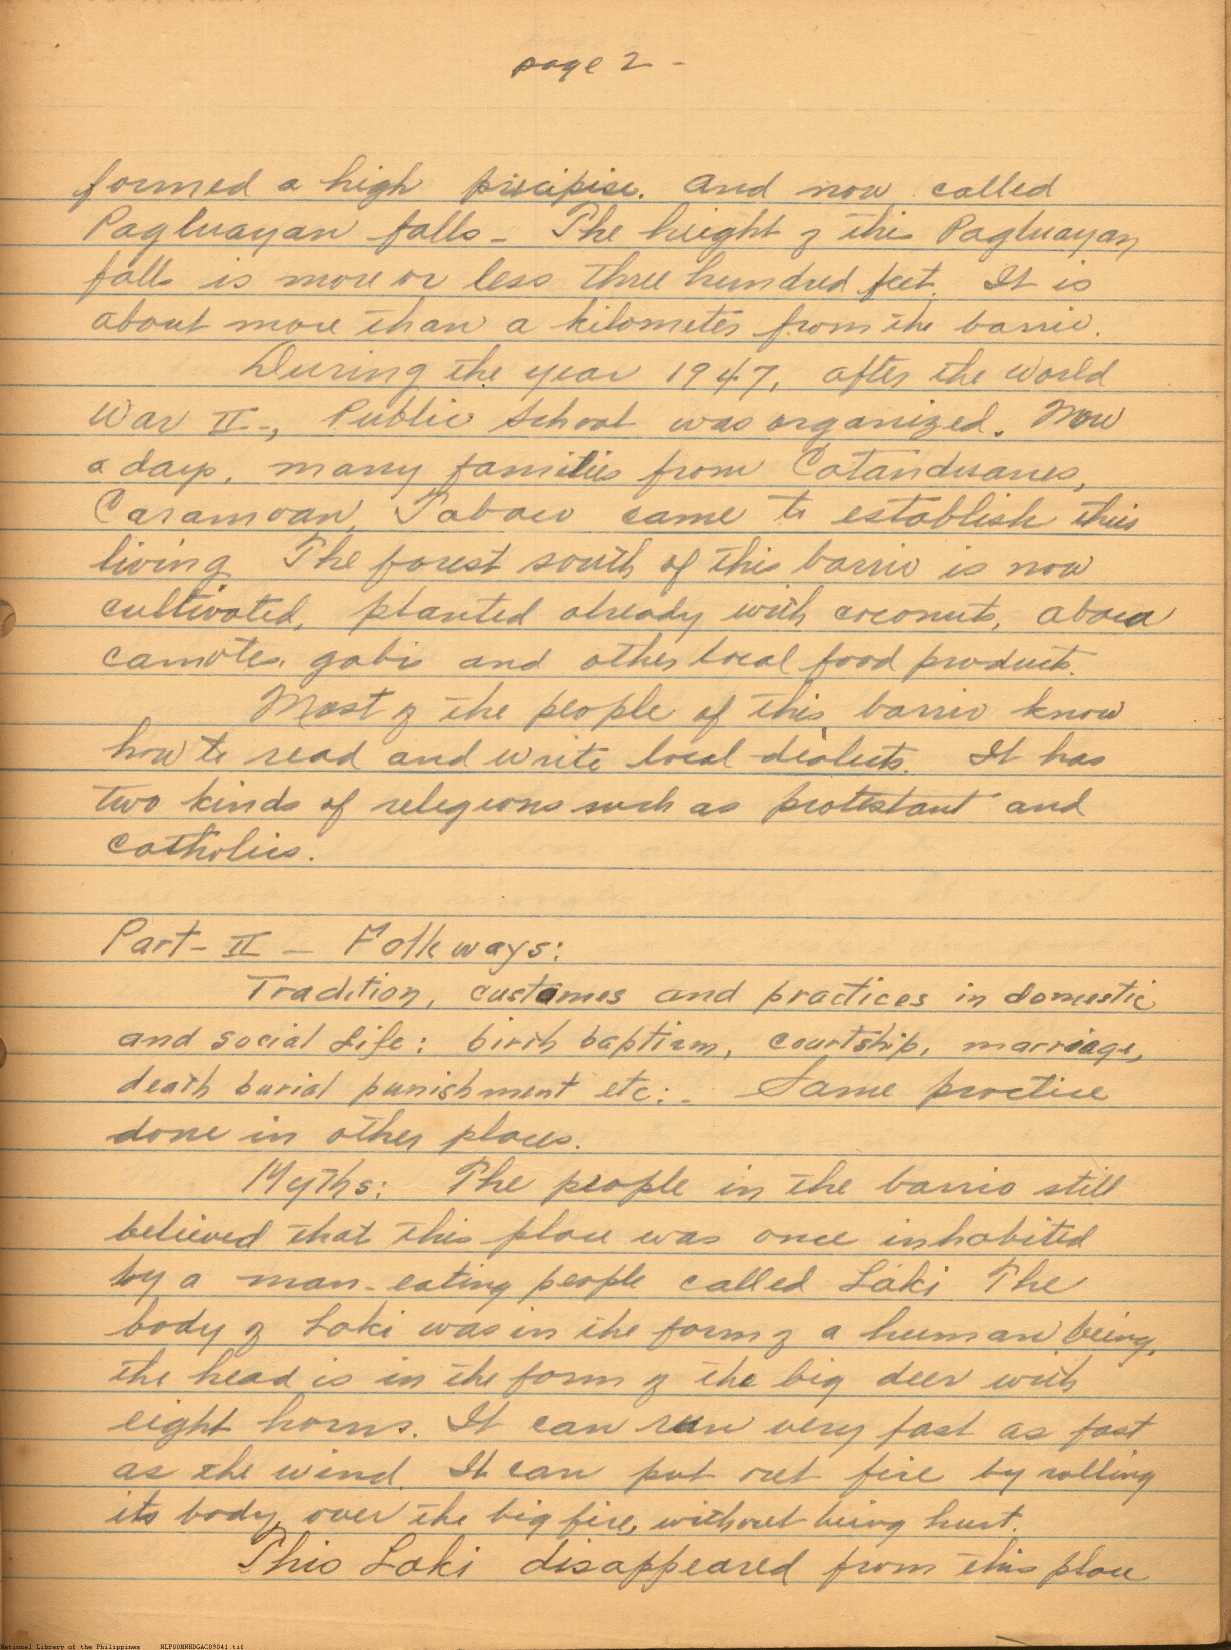 page 2 -
formed a high precipise. And now called
Pagluayan falls - The height of this Pagluayan
falls is more or less three hundred feet. It is
about more than a kilometer from the barrio.
During the year 1947, after the World
War II -, Public School was organized. Now
a days, many families from Catanduanes,
Caramoan, Tabaco came to establish their
living. The forest south of this barrio is now
cultivated, planted already with coconuts, abaca
camotes, gabi and other local food products.
Most of the people of this barrio know
how to read and write local dialects. It has
two kinds of religions such as protestant and
catholics.
Part - II - Folkways:
Tradition, customes and practices in domestic
and social life: birth baptism, courtship, marriage,
death burial punishment etc: - Same practice
done in other places.
Myths: The people in the barrio still
believed that this place was once inhabited
by a man-eating people called Laki The
body of Laki was in the form of a human being,
the head is in the form of the big deer with
eight horns. It can run very fast as fast
as the wind. It can put out fire by rolling
its body over the big fire, without being hurt.
This Laki disappeared from this place
National Library of the Philippines NLP00MNHDGAC09041.tif